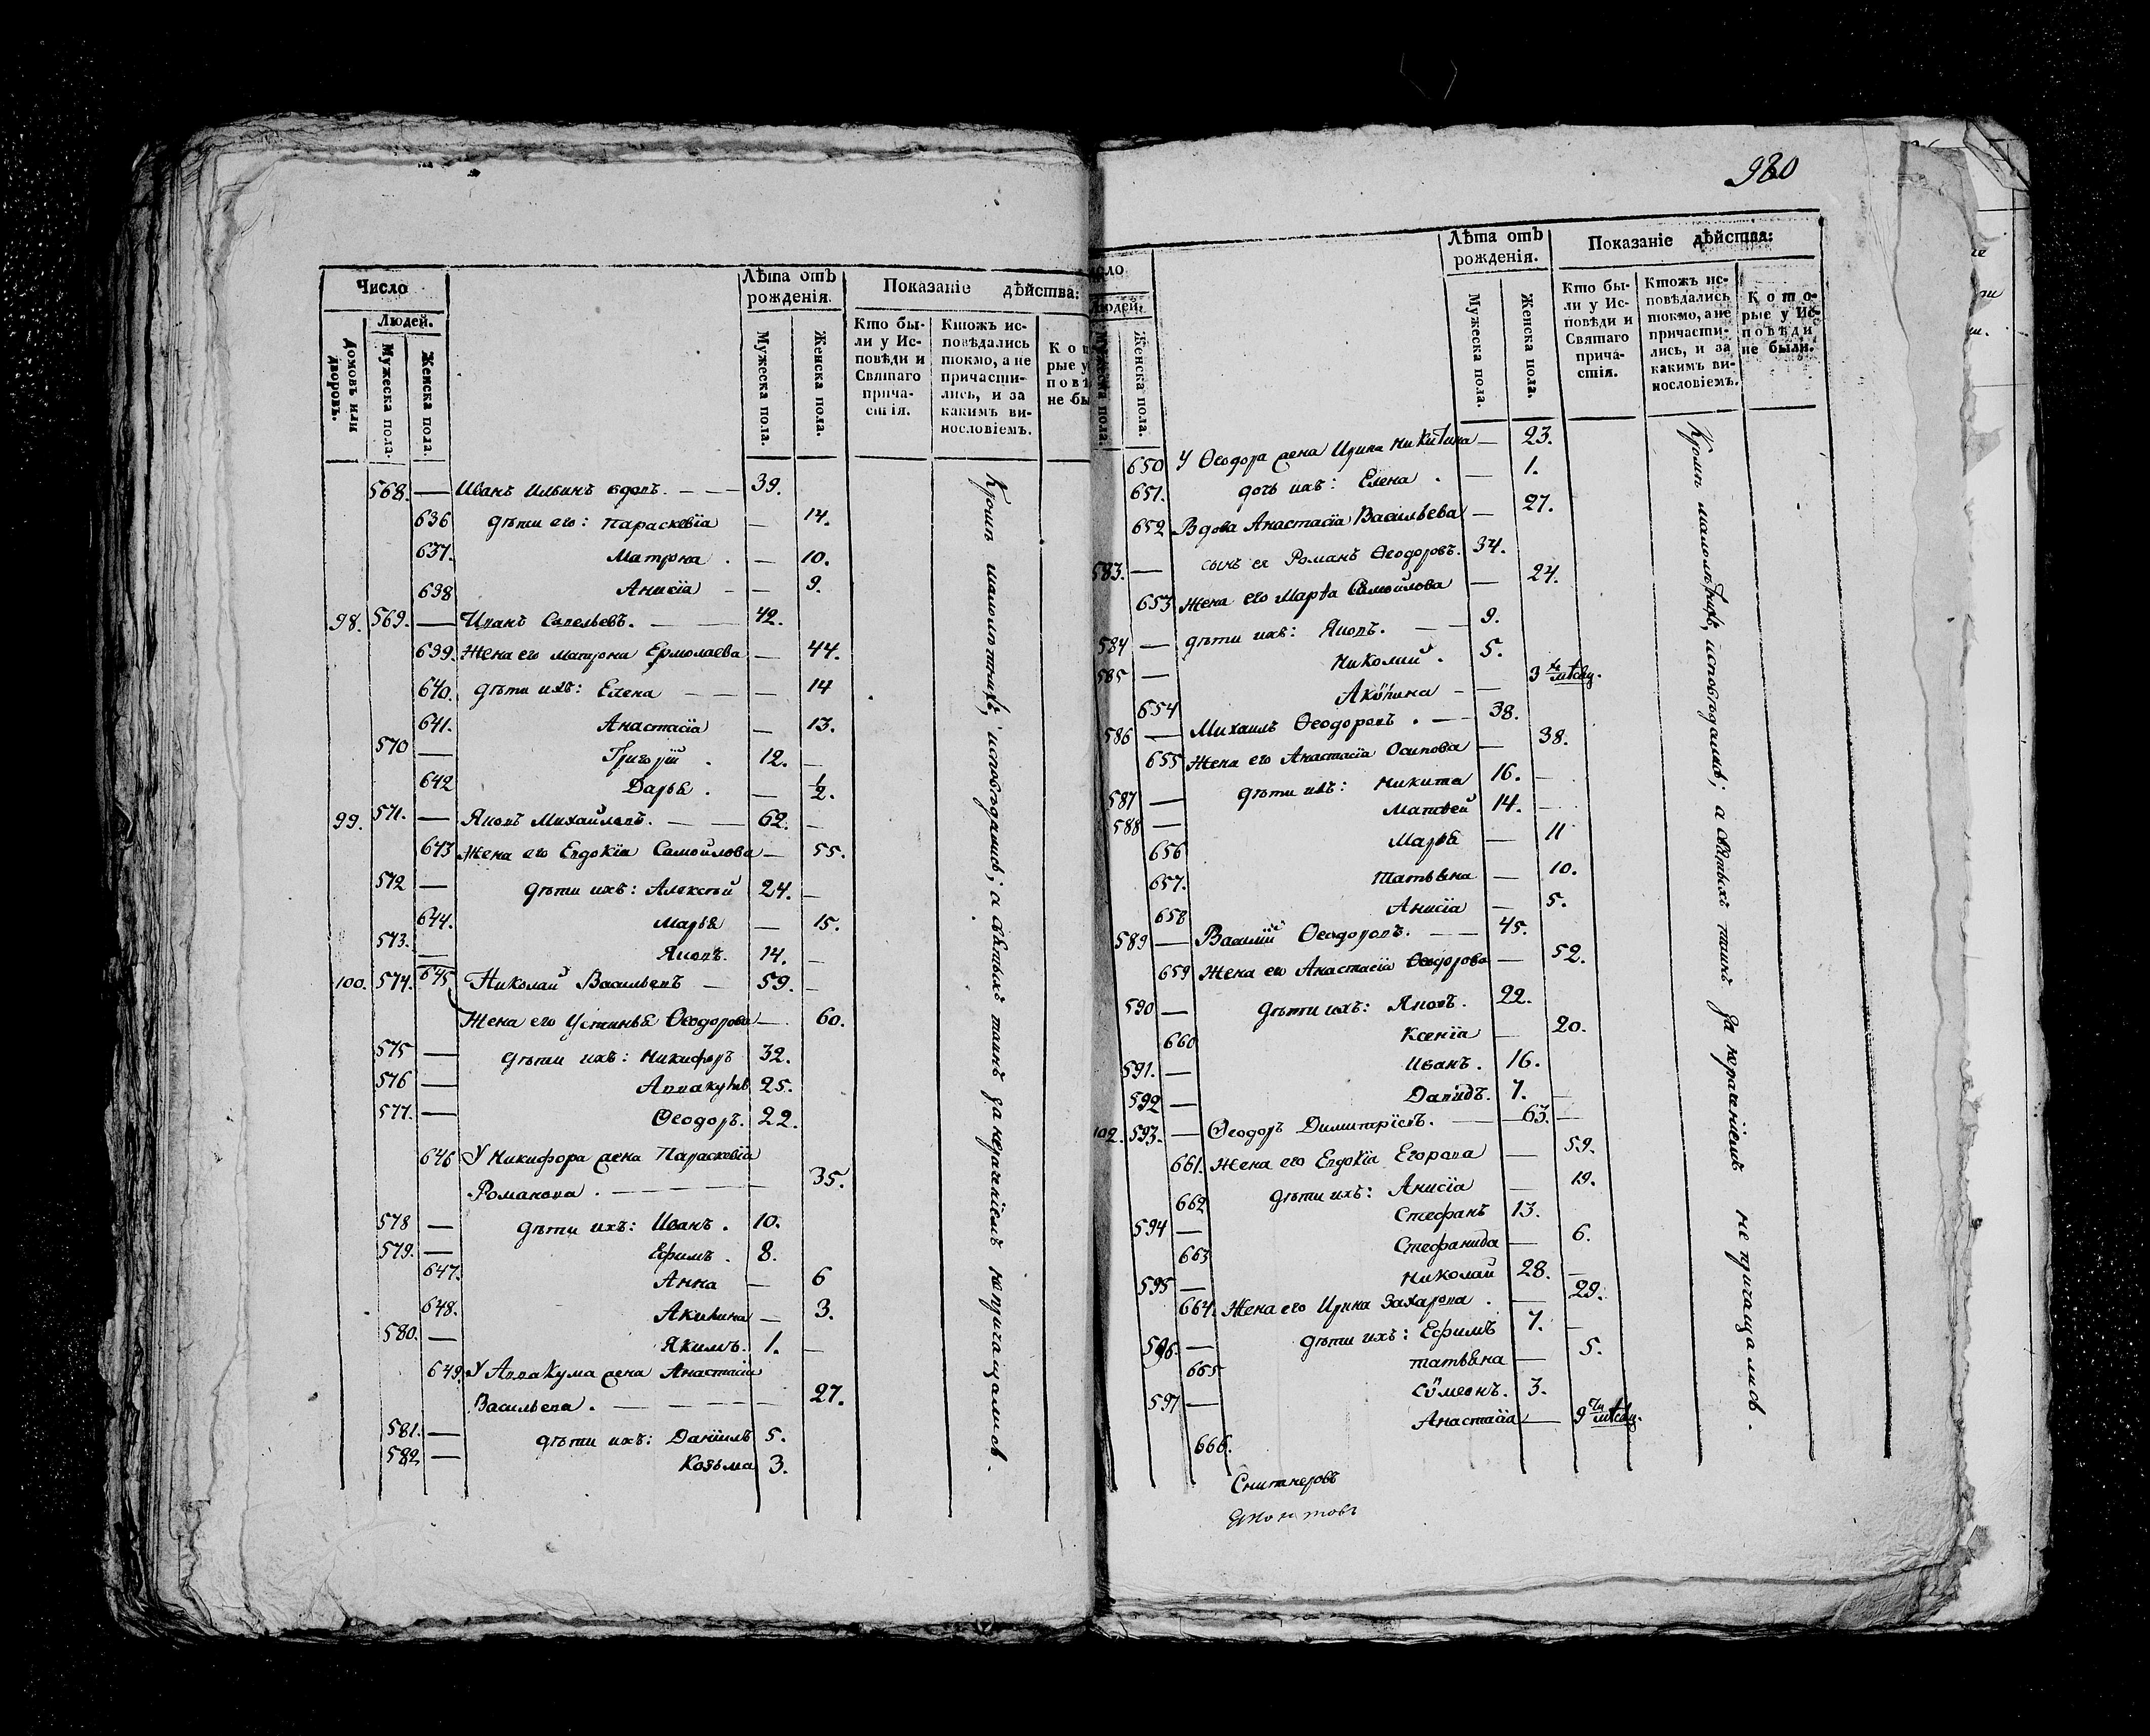 Число
Людей.
Домовъ или дворовъ.
Мужеска пола.
Женска пола.
Лѣта отъ рожденія.
Мужеска пола.
Женска пола.
Показаніе дѣйства:
Кто бы-
ли у Ис-
повѣди и
Святаго
прича-
стія.
Ктожъ ис-
повѣдались
токмо, а не
причасти-
лись, и за
какимъ ви-
нословіемъ.
568. — Иванъ Ильинъ вдовъ. — — 39.
636 дѣти его: Параскевіа — 14.
637. Матрона . — 10.
638 Анисіа — — 9.
98. 569. — Иванъ Савельевъ. — — 42.
639. Жена его Матрона Ермолаева — 44.
640. дѣти ихъ: Елена — — — 14
641. Анастасіа — 13.
570 — Григорій . 12. —
642 Дарья . — 1/2.
99. 571. — Яковъ Михайловъ. — — 62. —
643 Жена его Евдокіа Самойлова — 55.
572 — дѣти ихъ: Алексѣй 24. —
644. Марья — 15.
573. — Яковъ. 14. —
100. 574. 645 Николай Васильевъ — 59. —
Жена его Устинья Ѳеодорова — 60.
575 — дѣти ихъ: Никифоръ 32.
576 — Аввакумъ 25.
577. — Ѳеодоръ. 22.
646 У Никифора жена Параскевіа
Романова . — — — — 35.
578 — дѣти ихъ: Иванъ . 10.
579. — Ефимъ . 8.
647. Анна — 6
648. Акилина — 3.
580. — Якимъ. 1. —
649. У Аввакума жена Анастасіа
Васильева . — — — — 27.
581. — дѣти ихъ: Даніилъ 5.
582 — Козьма 3.
Кромѣ малолѣтнихъ, исповѣдались; а святыхъ таинъ за нераченіемъ не причащались.
980
Людей.
Мужеска пола.
Женска пола.
Лѣта отъ
рожденія.
Мужеска пола.
Женска пола.
Показаніе дѣйства:
Кто бы-
ли у Ис-
повѣди и
Святаго
прича-
стія.
Ктожъ ис-
повѣдались
токмо, а не
причасти-
лись, и за
какимъ ви-
нословіемъ.
Кото-
рые у Ис-
повѣди
не были.
650 У Ѳеодора жена Ирина Никитина — 23.
651. дочь ихъ: Елена . — 1.
652 Вдова Анастасіа Васильева — 27.
583. — сынъ ея Романъ Ѳеодоровъ. 34.
653 Жена его Марѳа Самойлова — 24.
584 — дѣти ихъ: Яковъ. — — 9.
585 — Николай . 5.
654 — — 3
586 — Михаилъ Ѳеодоровъ . — 38.
655 Жена его Анастасіа Осипова — 38.
587 — дѣти ихъ: Никита 16. —
588 — Матвей 14. —
656 Марья — 11
657. Татьяна — 10.
658 Анисіа — 5.
589 — Василій Ѳеодоровъ. — — 45.
659 Жена его Анастасіа Ѳеодорова — 52.
590 — дѣти ихъ: Яковъ. 22.
660 Ксеніа — 20.
591. — Иванъ . 16.
592 — Давидъ. 7. —
102. 593. — Ѳеодоръ Димитріевъ. — 63. —
661. Жена его Евдокіа Егорова — 59.
662 дѣти ихъ: Анисіа — 19.
594 — Стефанъ 13.
663 Стефанида — 6.
595 — Николай 28. —
664. Жена его Ирина Захарова . — 29.
596. — дѣти ихъ: Ефимъ 7. —
665 Татьяна — 5.
597 — Сѵмеонъ. 3.
666. Анастасіа — 9
Кромѣ малолѣтнихъ, исповѣдались; а святыхъ таинъ за нераченіемъ не причащались.